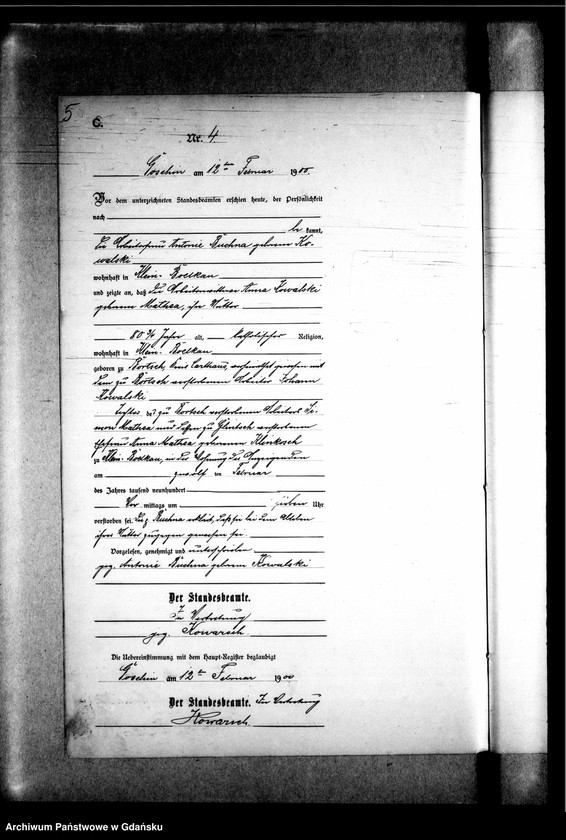 5
C.
Nr. 4
Goschin am 12ten Februar 1900.
Vor dem unterzeichneten Standesbeamten erschien heute, der Persönlichkeit
nach
be kannt,
die Arbeiterfrau Antonie Buchna geborene Ko-
walski
wohnhaft in Klein-Boelkau
und zeigte an, daß die Arbeiterwittwe Anna Kowalski
geborene Mathea, ihre Mutter
80 3/4 Jahre alt, katholischer Religion,
wohnhaft in Klein-Boelkau
geboren zu Kreis Carthaus, verheirathet gewesen mit
dem zu verstorbenen Arbeiter Johann
Kowalski
Tochter des zu verstorbenen Si-
mon Mathea und dessen zu verstorbenen
Ehefrau Anna Mathea geborenen
zu Klein-Boelkau, in der Wohnung der Anzeigenden
am zwölf ten Februar
des Jahres tausend neunhundert
Vor mittags um sieben Uhr
verstorben sei. Die p. Buchna erklärt, daß sie bei dem Ableben
ihrer Mutter zugegen gewesen sei.
Vorgelesen, genehmigt und unterschrieben
gez. Antonie Buchna geborene Kowalski
Der Standesbeamte.
In Vertretung
gez. Kowarsch
Die Uebereinstimmung mit dem Haupt-Register beglaubigt
Goschin am 12ten Februar 1900
Der Standesbeamte. In Vertretung
Kowarsch
Archiwum Państwowe w Gdańsku